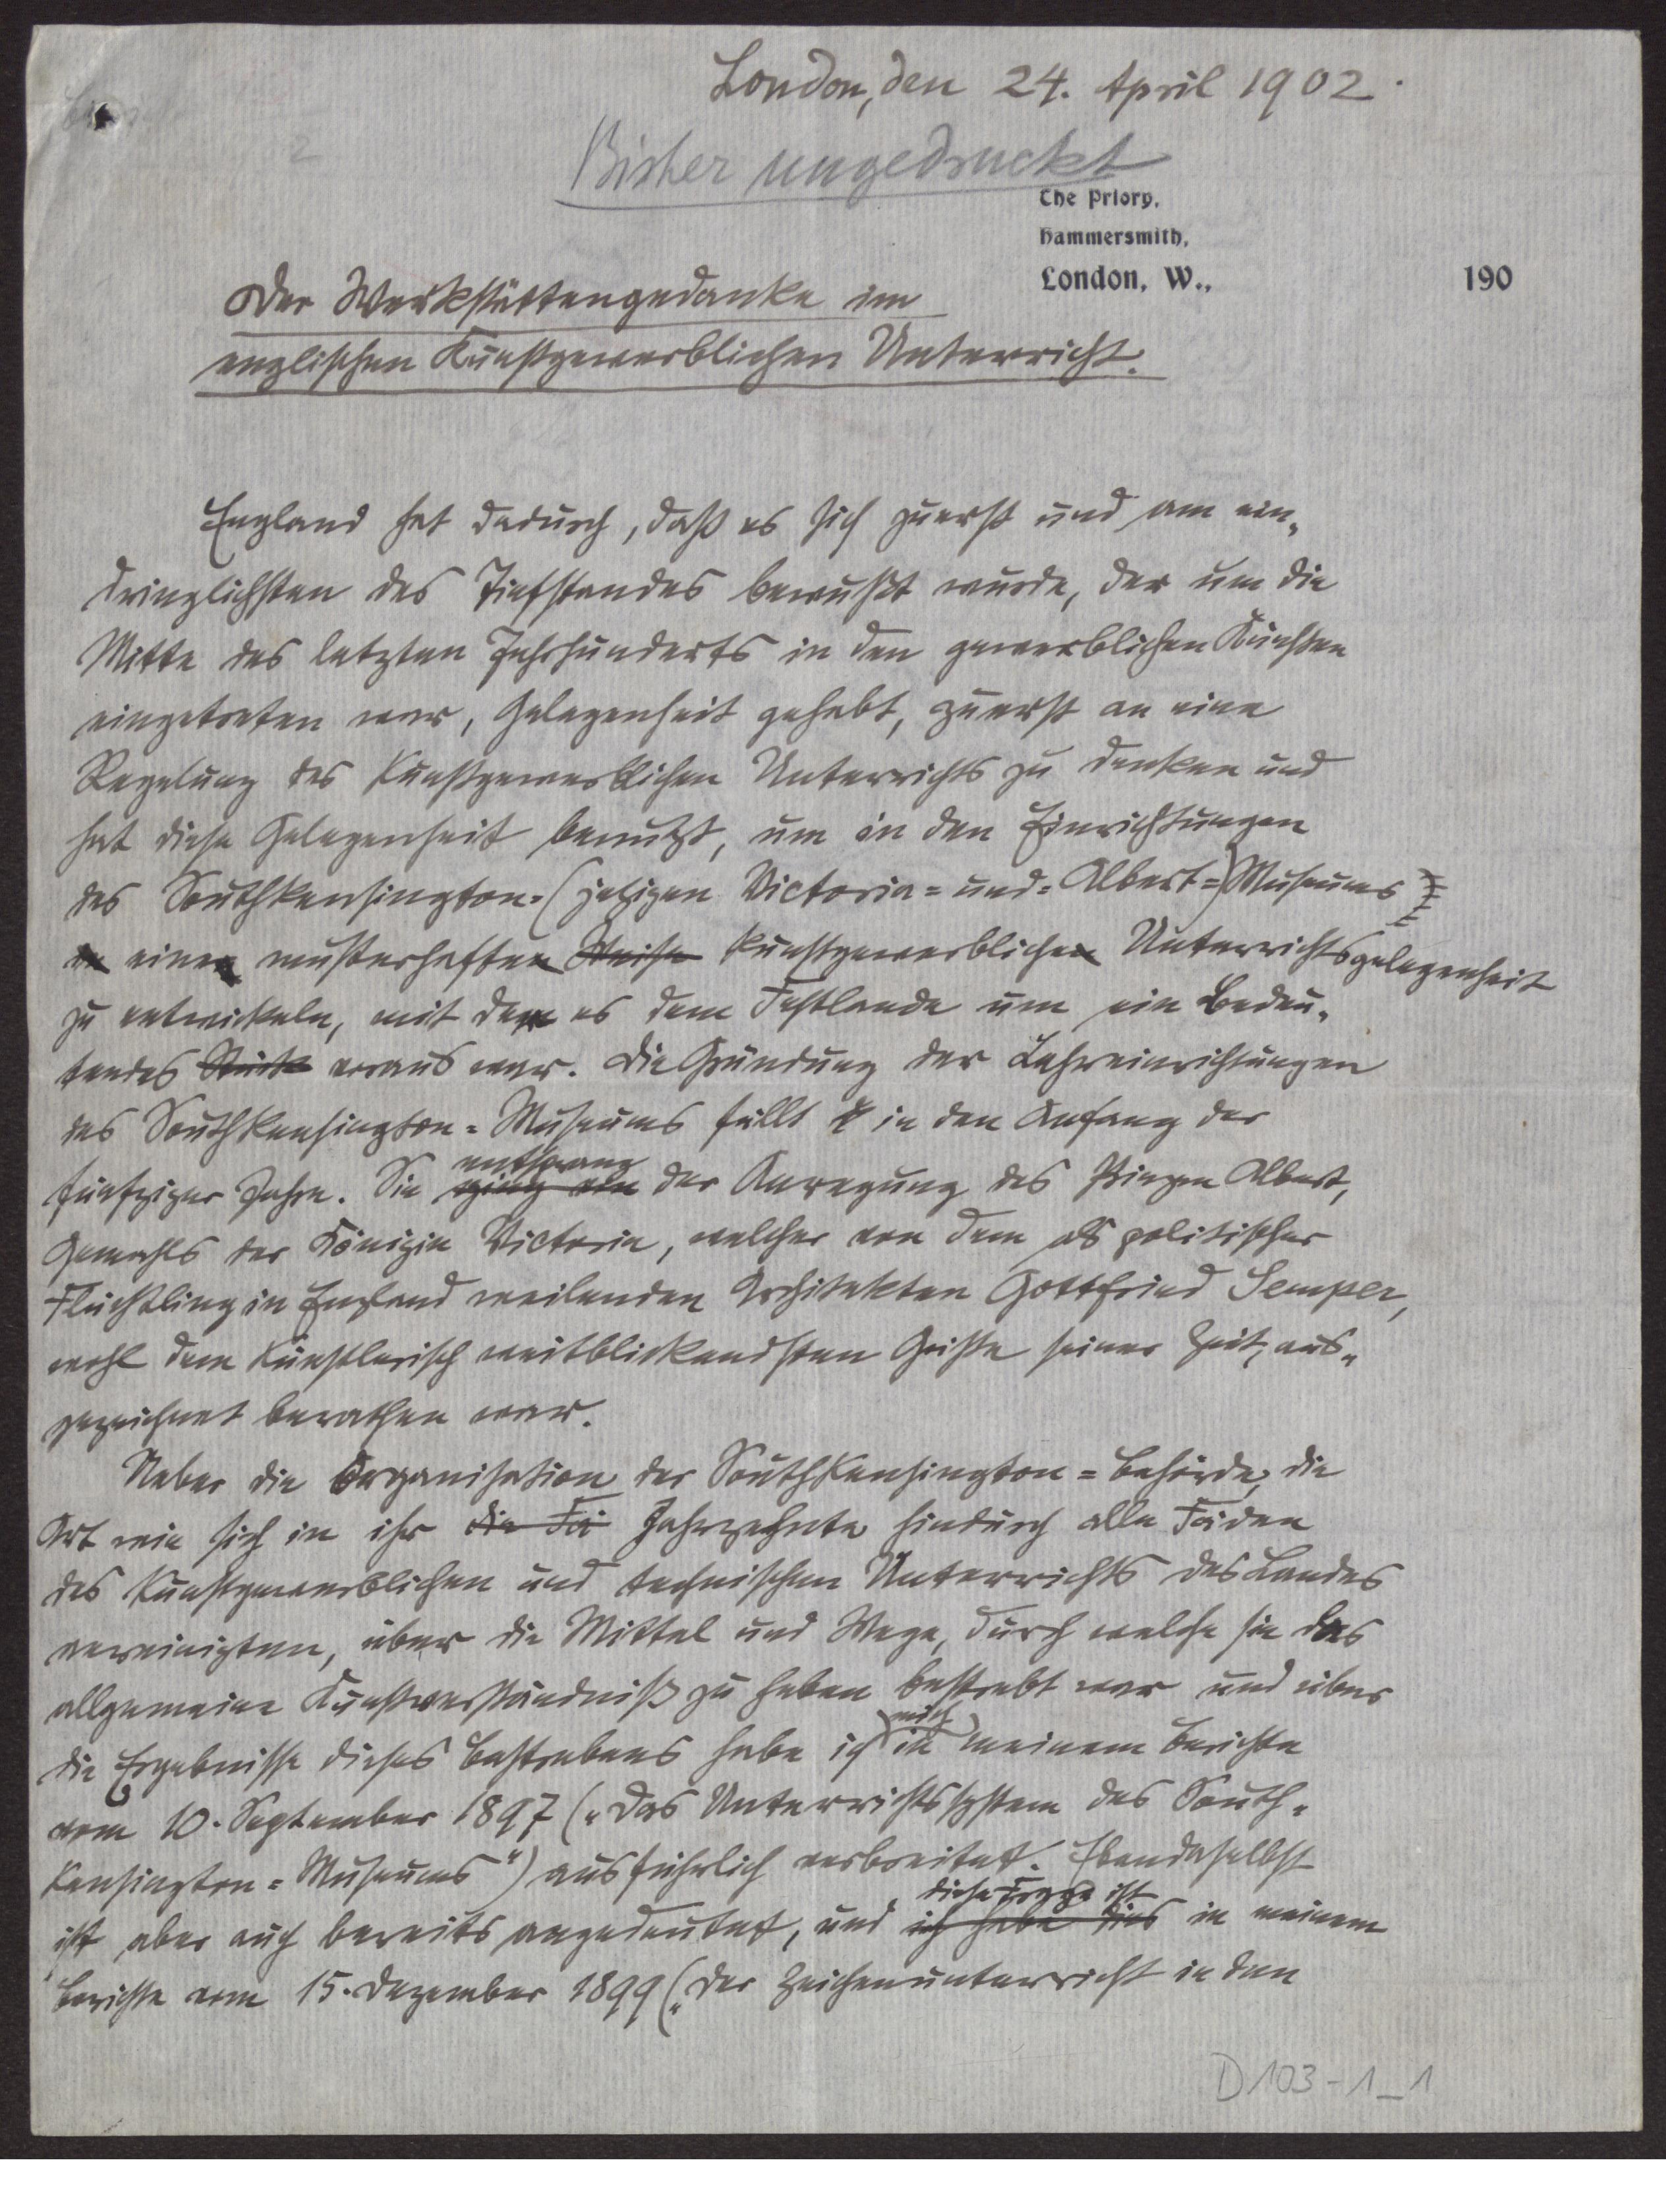 London, den 24. April 1902.
2
Bisher ungedruckt
The Priory,
Hammersmith,
London, W., 190
Der Werkstättengedanke im
englischen kunstgewerblichen Unterricht.
England hat dadurch, daß es sich zuerst und am ein-
dringlichsten des Tiefstandes bewußt wurde, der um die
Mitte des letzten Jahrhunderts in den gewerblichen Künsten
eingetreten war, Gelegenheit gehabt, zuerst an eine
Regelung des kunstgewerblichen Unterrichts zu denken und
hat diese Gelegenheit benutzt, um in den Einrichtungen
des Southkensington- (jetzigen Victoria- und- Albert-) Museums
eine musterhafte kunstgewerbliche Unterrichtsgelegenheit
zu entwickeln, mit der es dem Festlande um ein Bedeu-
tendes voraus war. Die Gründung der Lehreinrichtungen
des Southkensington-Museums fällt in den Anfang der
fünfziger Jahre. Sie entsprang der Anregung des Prinzen Albert,
Gemahls der Königin Victoria, welcher von dem als politischer
Flüchtling in England weilenden Architekten Gottfried Semper,
wohl dem künstlerisch weitblickendsten Geiste seiner Zeit, aus-
gezeichnet berathen war.
Ueber die Organisation der Southkensington-Behörde, die
Art wie sich in ihr die Fä Jahrzehnte hindurch alle Fäden
des kunstgewerblichen und technischen Unterrichts des Landes
vereinigten, über die Mittel und Wege, durch welche sie das
allgemeine Kunstverständniß zu heben bestrebt war und über
die Ergebnisse dieses Bestrebens habe ich mich in meinem Berichte
vom 10. September 1897 („Das Unterrichtssystem des South-
Kensington-Museums") ausführlich verbreitet. Ebendaselbst
ist aber auch bereits angedeutet, und diese Frage ist ich habe dies in meinem
Berichte vom 15. Dezember 1899 („Der Zeichenunterricht in den
D 103-1_1